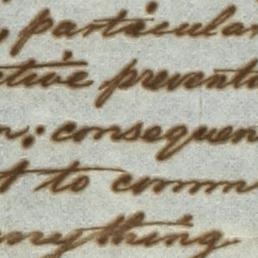 , particular
ctive preventi
n; consequen
t to comm
anything